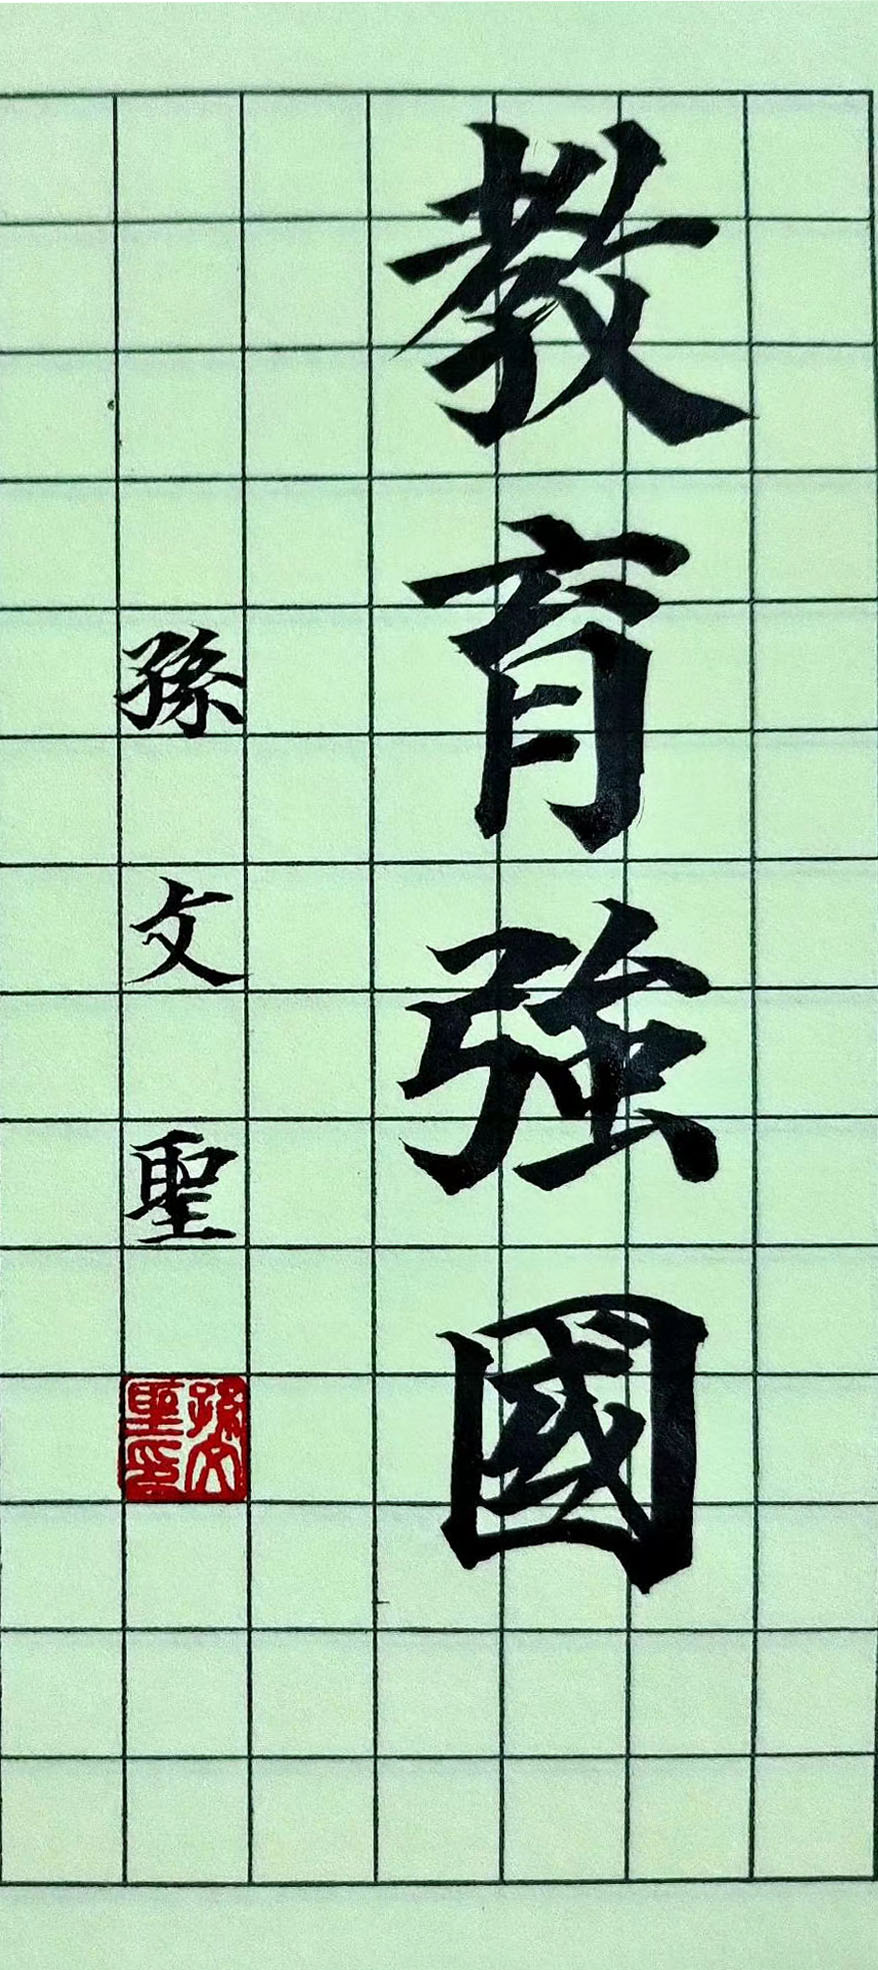 教育強國
孫文聖
孫文聖印